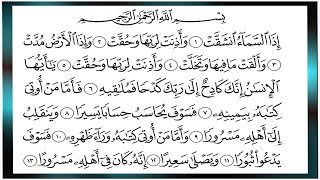 بِسْمِ اللَّهِ الرَّحْمَٰنِ الرَّحِيمِ
إِذَا السَّمَاءُ انشَقَّتْ ١ وَأَذِنَتْ لِرَبِّهَا وَحُقَّتْ ٢ وَإِذَا الْأَرْضُ مُدَّتْ
٣ وَأَلْقَتْ مَا فِيهَا وَتَخَلَّتْ ٤ وَأَذِنَتْ لِرَبِّهَا وَحُقَّتْ ٥ يَا أَيُّهَا
الْإِنسَانُ إِنَّكَ كَادِحٌ إِلَىٰ رَبِّكَ كَدْحًا فَمُلَاقِيهِ ٦ فَأَمَّا مَنْ أُوتِيَ
كِتَابَهُ بِيَمِينِهِ ٧ فَسَوْفَ يُحَاسَبُ حِسَابًا يَسِيرًا ٨ وَيَنقَلِبُ
إِلَىٰ أَهْلِهِ مَسْرُورًا ٩ وَأَمَّا مَنْ أُوتِيَ كِتَابَهُ وَرَاءَ ظَهْرِهِ ١٠ فَسَوْفَ
يَدْعُو ثُبُورًا ١١ وَيَصْلَىٰ سَعِيرًا ١٢ إِنَّهُ كَانَ فِي أَهْلِهِ مَسْرُورًا ١٣